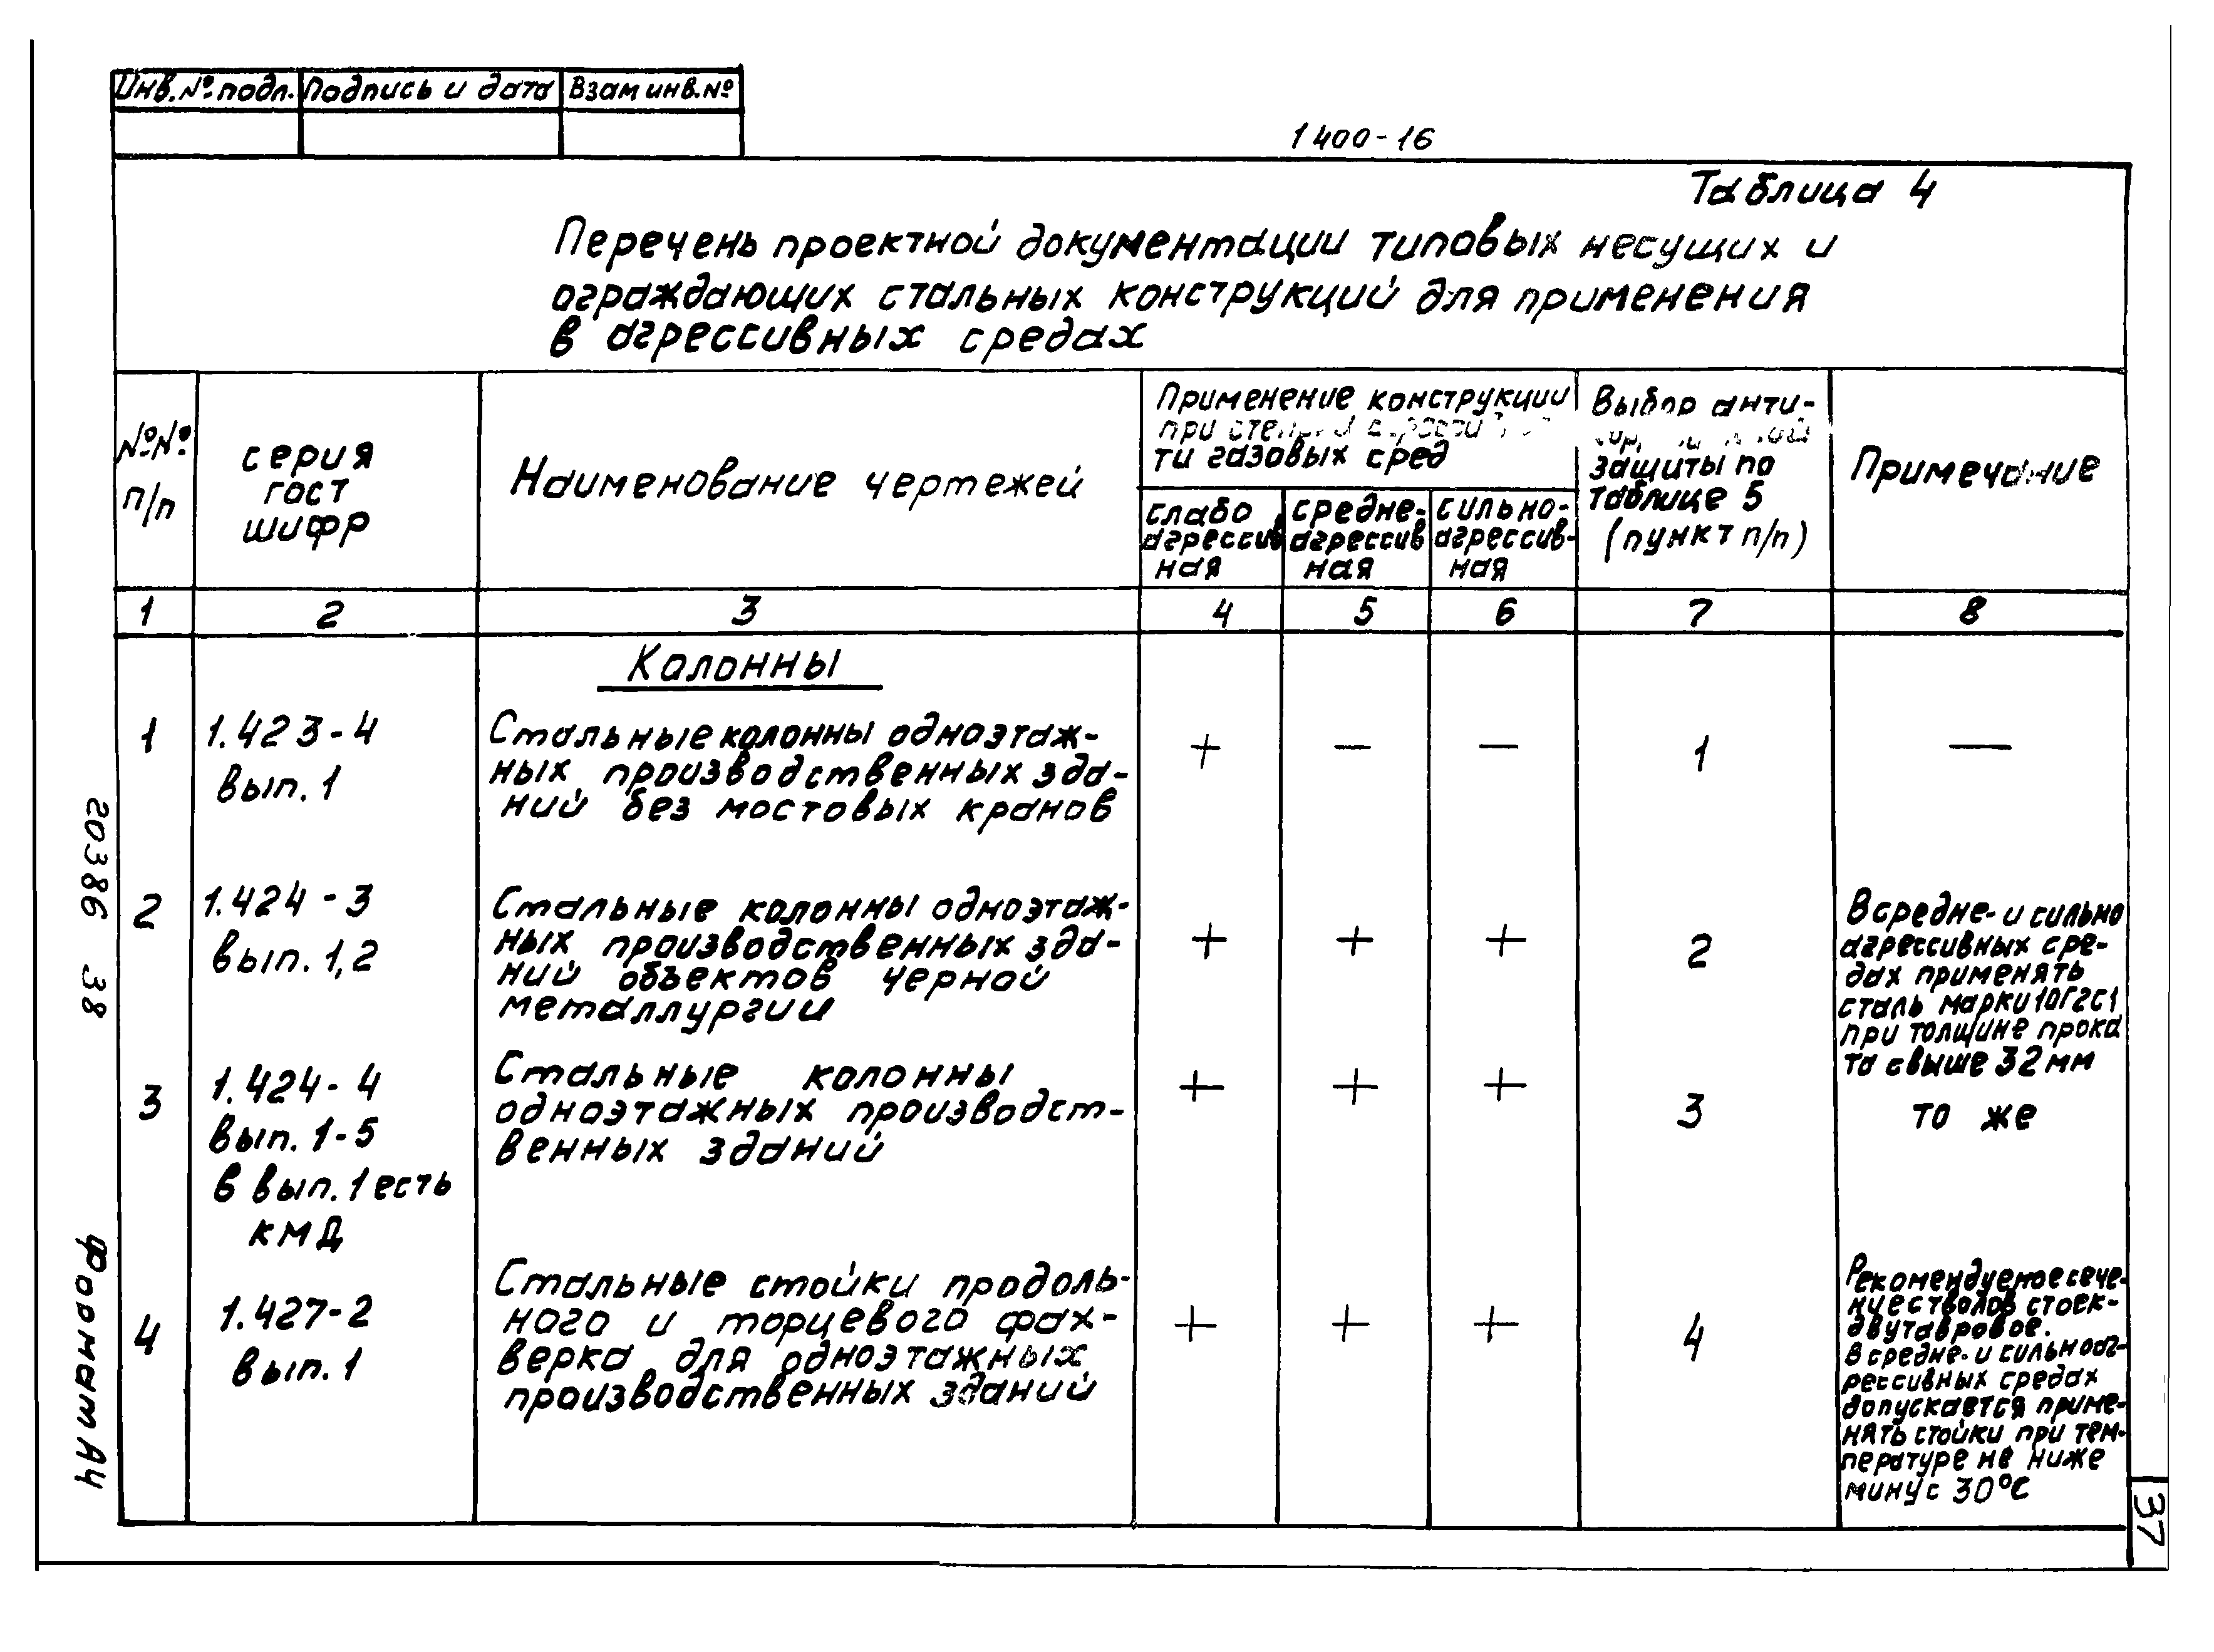 Инв.№ подл. Подпись и дата Взам инв.№
1400-16
Таблица 4
Перечень проектной документации типовых несущих и
ограждающих стальных конструкций для применения
в агрессивных средах
№№
п/п
серия
гост
шифр
Наименование чертежей
Применение конструкции
при
ти газовых сред
слабо
агрессив
ная
средне-
агрессив
ная
сильно-
агрессив-
ная
Выбор анти-
защиты по
таблице 5
(пункт п/п)
Примечание
1 2 3 4 5 6 7 8
Колонны
1
1.423-4
вып. 1
Стальные колонны одноэтаж-
ных производственных зда-
ний без мостовых кранов
+ — — 1 —
2
1.424-3
вып. 1,2
Стальные колонны одноэтаж-
ных производственных зда-
ний объектов черной
металлургии
+ + + 2
В средне- и сильно
агрессивных сре-
дах применять
сталь марки 10Г2С1
при толщине прока
та свыше 32 мм
3
1.424-4
вып. 1-5
в вып. 1 есть
КМД
Стальные колонны
одноэтажных производст-
венных зданий
+ + + 3
то же
4
1.427-2
вып. 1
Стальные стойки продоль-
ного и торцевого фах-
верка для одноэтажных
производственных зданий
+ + + 4
Рекомендуемое сече-
ние стволов стоек-
двутавровое.
В средне- и сильноаг-
рессивных средах
допускается приме-
нять стойки при тем-
пературе не ниже
минус 30°С
20386 38
Формат А4
37